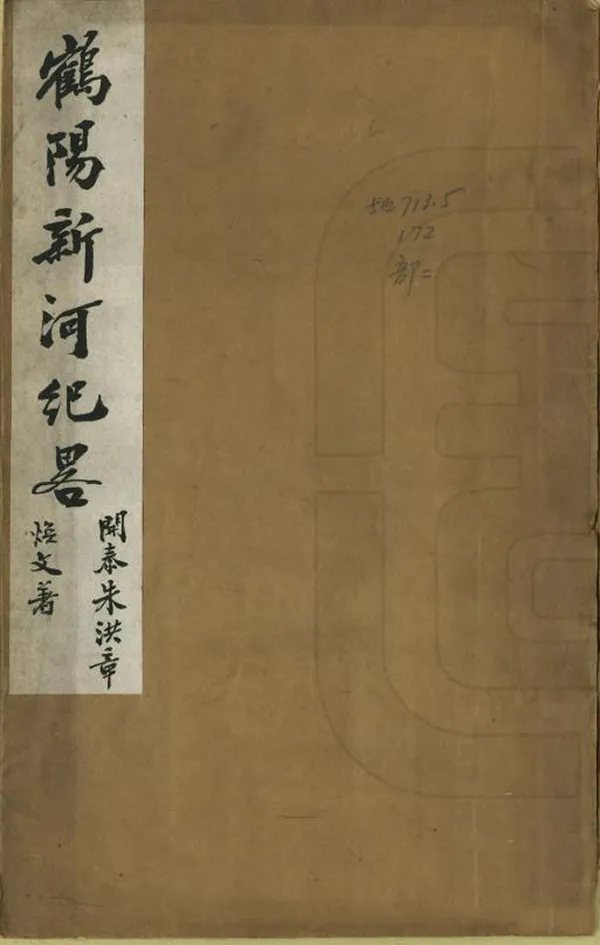 鶴陽新河紀畧
開泰朱洪章
焕文著
地713.5
172
部二